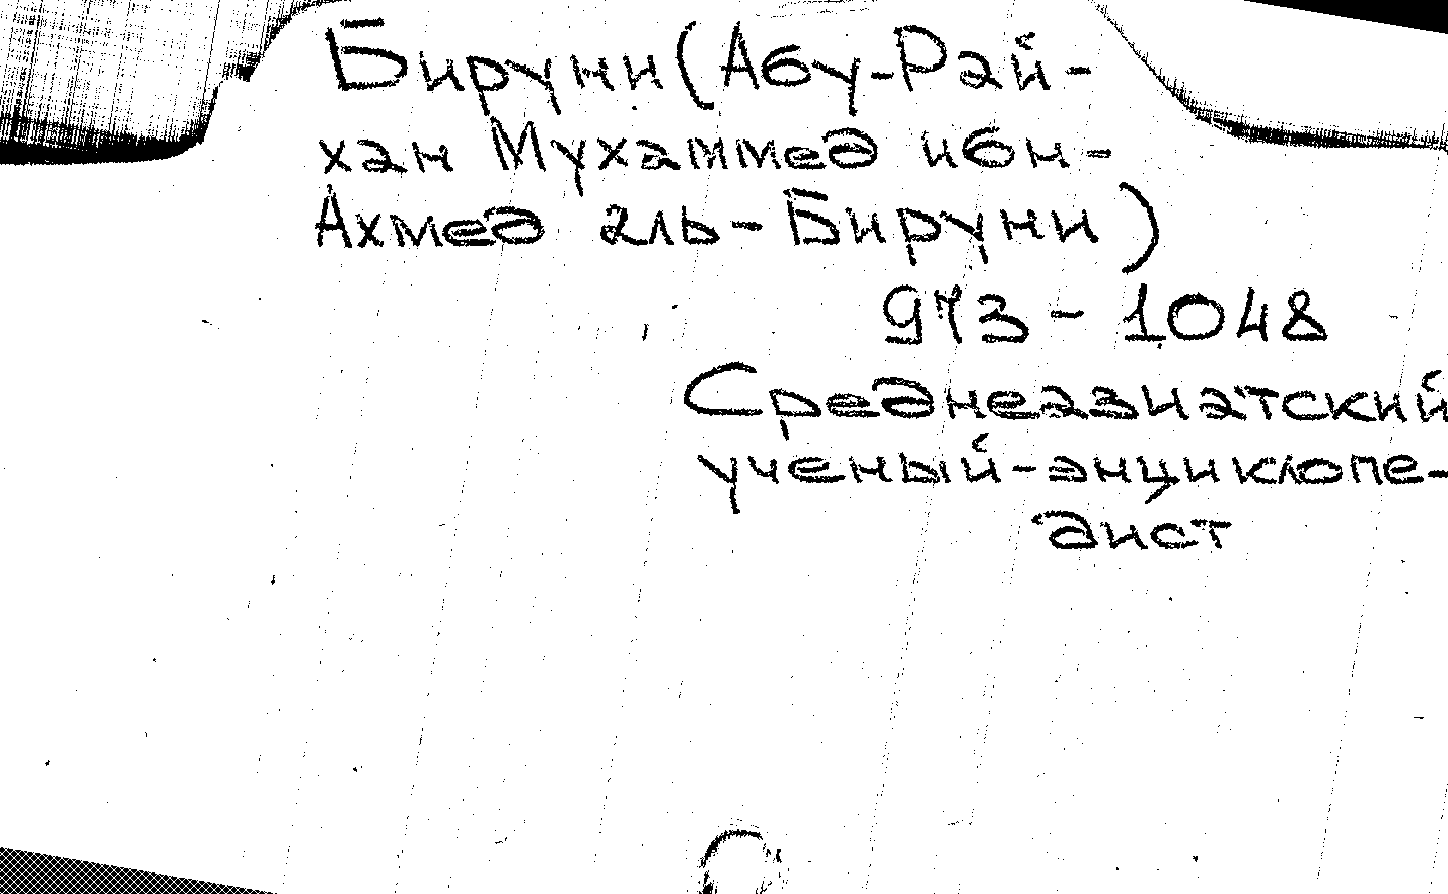 Бируни (Абу-Рай-
хан Мухаммед ибн-
Ахмед аль-Бируни)
973 - 1048
Среднеазиатский
ученый-энциклопе-
дист